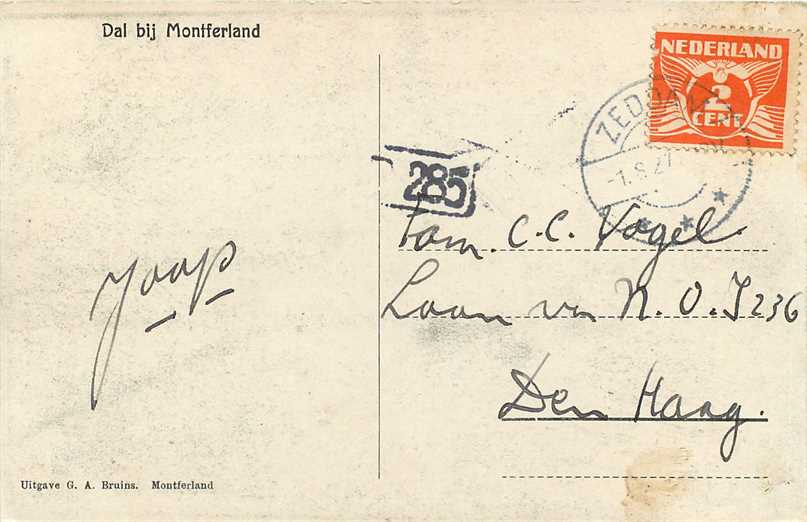 Dal bij Montferland
NEDERLAND
2
CENT
ZEDDAM
-1.8.27
285
Fam. C.C. Vogel
Laan v N.O.I 236
Den Haag.
Joop
Uitgave G. A. Bruins. Montferland